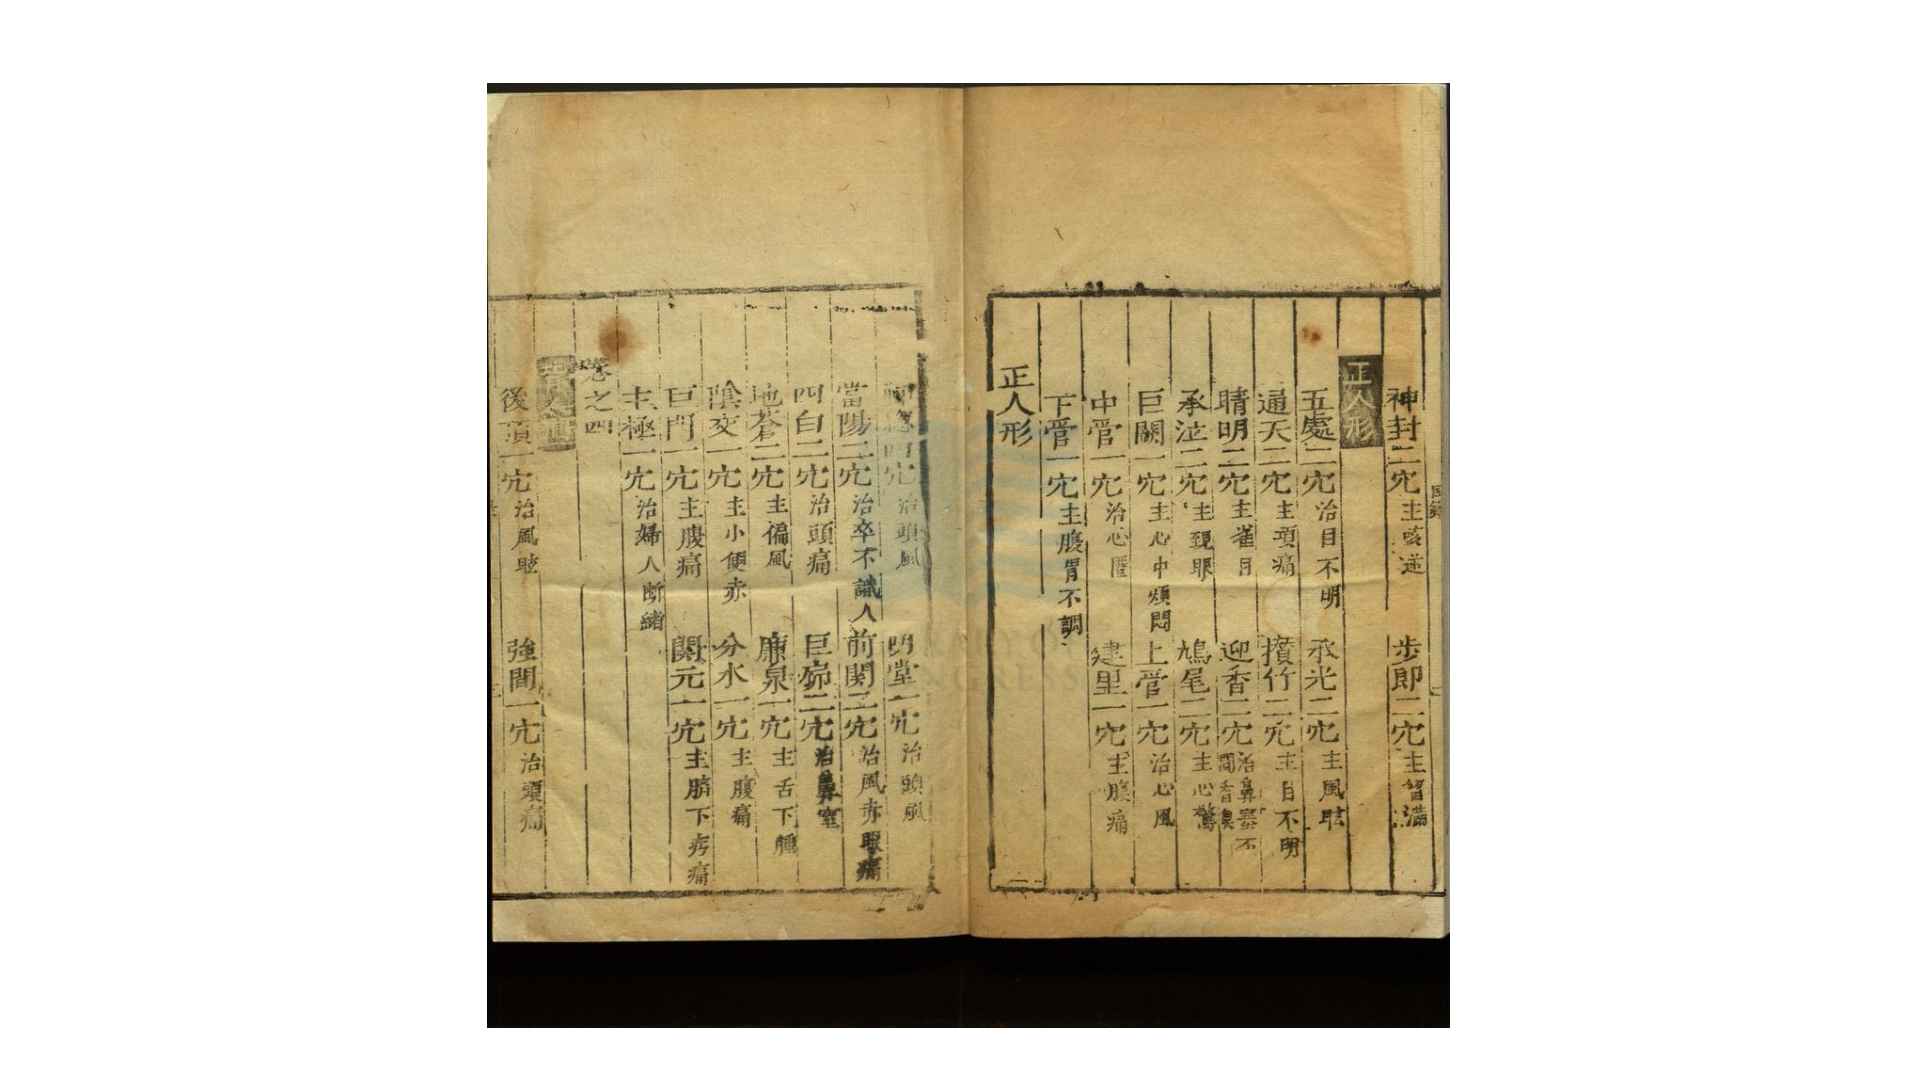 神封二穴主咳逆 步郎二穴主智滿
正人形
五處二穴治目不明 承光二穴主風眩
通天二穴主項痛 攅竹二穴主目不明
睛明二穴主雀目 迎香二穴治鼻塞不聞香臭
承泣二穴主䀎眼 鳩尾二穴主心驚
巨闕一穴主心中煩悶 上管一穴治心風
中管一穴治心匿 建里一穴主腹痛
下管一穴主腹胃不調
正人形
神聰四穴治頭風 明堂一穴治頭風
當陽二穴治卒不識人 前関二穴治風赤眼痛
四白二穴治頭痛 巨窌二穴治鼻窒
地蒼二穴主偏風 廉泉一穴主舌下腫
陰交一穴主小便赤 分水一穴主腹痛
巨門一穴主腹痛 関元一穴主臍下㽲痛
主極一穴治婦人断緒
卷之四
後頂一穴治風眩 強間一穴治頭痛
LIBRARY OF CONGRESS